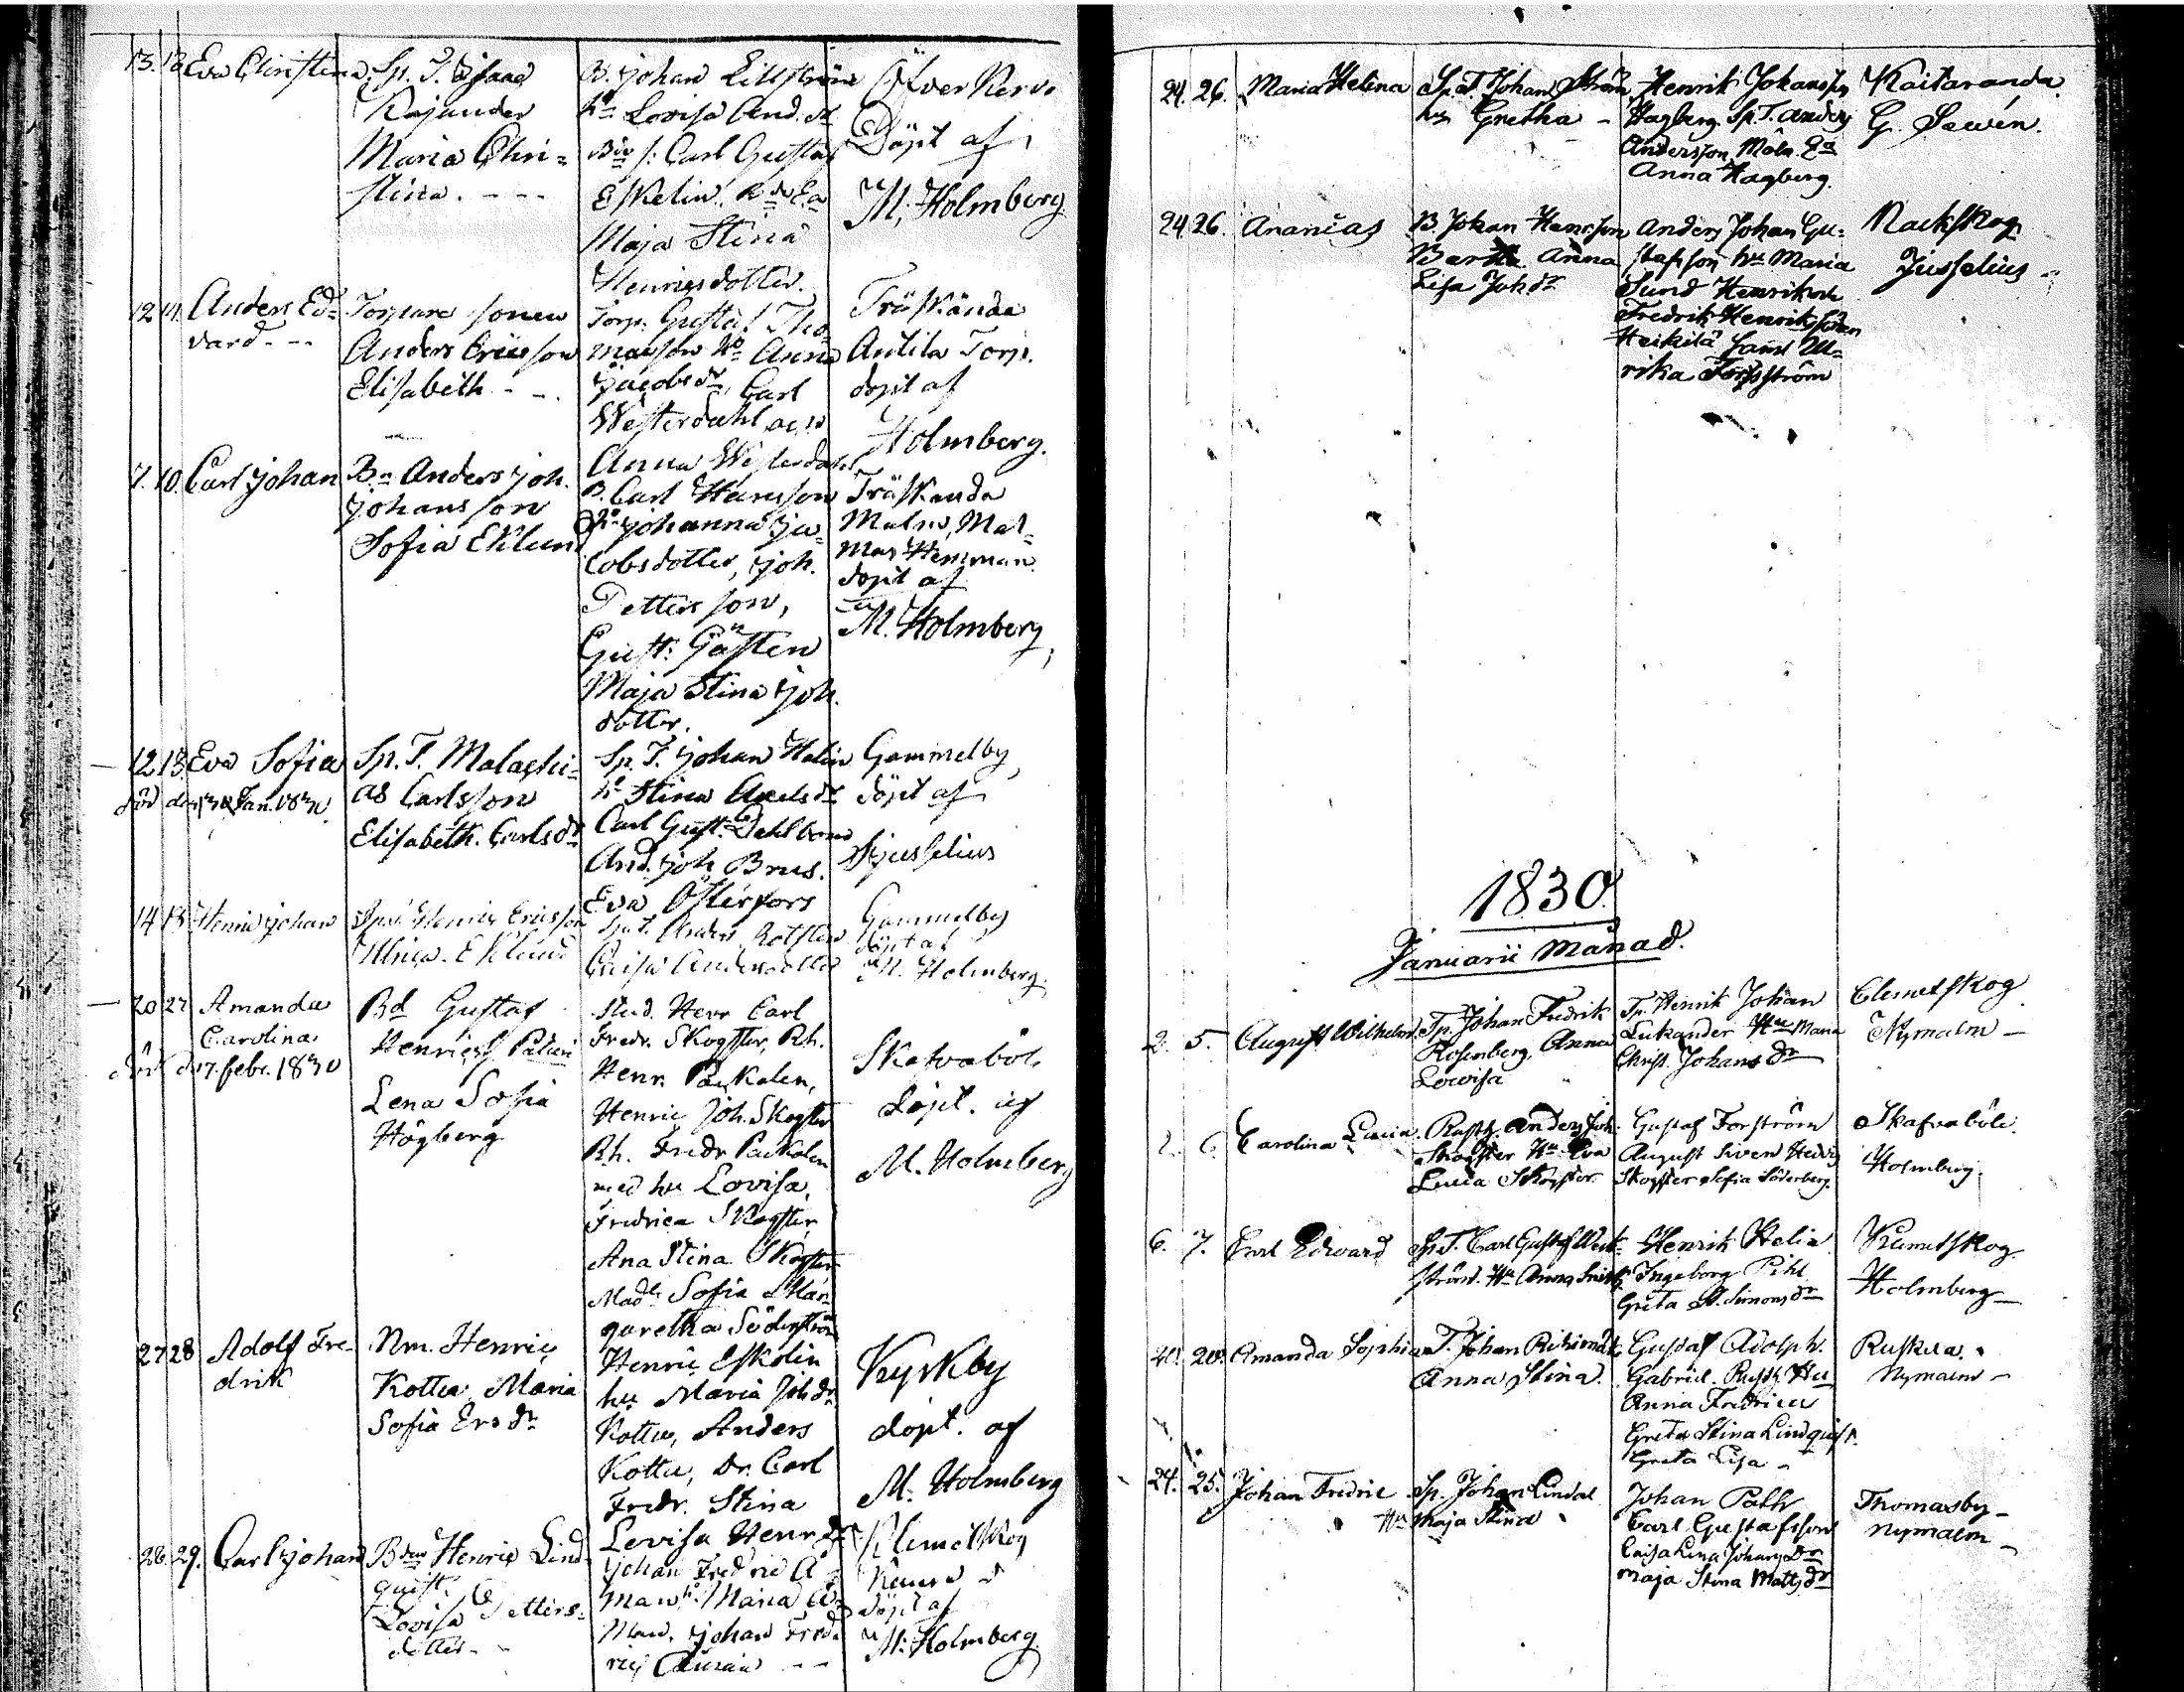 13. 13. Eva Christina
Sp. T. Isaac
Kajander
Maria Chri=
stina. - - -
B. Johan Lillström
hu Lovisa And. dr
Carl Gustaf
Eskelin
Maja Stina
Henricsdotter.
Öfver Kervo
Döpt af
M. Holmberg
12 14 Anders Ed=
vard - -
Torpare sonen
Anders Ericsson
Elisabeth - -
Torp. Gustaf Tho=
masson hu Anna
Jacobsdr, Carl
Westerdahl
Anna Westerdahl
Träskända
Anttila Torp.
döpt af
Holmberg.
7. 10. Carl Johan
Bn Anders Joh.
Johansson
Sofia Eklund
B. Carl Henrsson
hu Johanna Ja=
cobsdotter, Joh.
Pettersson,
Gust. Gästen
Maja Stina Joh.
dotter.
Träskända
Malm, Mat=
mas Hemman
döpt af
M. Holmberg
12 13. Eva Sofia
död den Jan. 1830
Sp. T. Malachi=
as Carlsson
Elisabeth. Carlsdr
Sp. T. Johan Helin
hu Stina Axelsdr
Carl Gust. Dahlbom
And. Joh Brus.
Eva Österfors
Gammelby,
döpt af
Jusselius
14 15 Henric Johan
Henric Ericsson
Ulrica Eklund
Sp. T. Anders Rotsten
Caisa Andersdotter
Gammelby
döpt af
M. Holmberg.
20 27 Amanda
Carolina
död d. 17. febr. 1830
Bd Gustaf
Henricss Palien
Lena Sofia
Högberg
Stud. Herr Carl
Fredr. Skogster, Rh.
Henr. Paikalen,
Henric Joh. Skogster
Rh. Fredr Paikalen
med hu Lovisa,
Fredrica Skogster,
Ana Stina Skogster
Madle Sofia Mar=
garetha Söderström
Skafvaböle
döpt. af
M. Holmberg
27 28 Adolf Fre-
drik
Nm. Henric
Kottu Maria
Sofia Ersdr
Henric Eskolin
hu Maria Johdr
Kottu, Anders
Kottu, Dr. Carl
Fredr. Stina
Lovisa Henrdr
Kyrkby
döpt. af
M. Holmberg
28. 29. Carl Johan
Bden Henric Lind=
quist.
Lovisa Petters=
dotter -
Johan Fredric Å=
man hu Maria Å=
man. Johan Fred=
ric
Klemetskog
döpt af
M. Holmberg
24. 26. Maria Helena
Sp. T. Johan Ström
hu Gretha -
Henrik Johansson
Hagberg Sp. T. Anders
Andersson Måln. Ea
Anna Hagberg.
Kaitaranda.
G. Sewén.
24 26. Ananias
B. Johan Henrsson
Anna
Lisa Johdr
Anders Johan Gu=
stafsson hu Maria
Sund Henriksdr
Fredrik Henriksson
Heikilä samt Ul=
rika Forsström
Nackskog
Jusselius -
1830
Januarii Månad.
2. 5. August Wilhelm
Tp. Johan Fredrik
Rosenberg, Anna
Lowisa
Tp. Henrik Johan
Lukander Hu Maria
Christ. Johans dr
Clemetskog
Nymalm -
2. 6. Carolina Lucia
Rusth. Anders Joh.
Skogster Hu Eva
Lucia Skogster.
Gustaf Forström
August Siven Hedvig
Skogster Sofia Söderberg.
Skafvaböle.
Holmberg.
6. 7. Carl Edvard
Sp. T. Carl Gustaf West=
ström. Hu Anna
Henrik Helin
Ingeborg Pihl
Greta St. Simonsdr
Klemetskog
Holmberg -
20. Amanda Sophia
T. Johan
Anna Stina.
Gustaf Adolph.
Gabriel. Rusth. Hu
Anna Fredrica
Greta Stina Lindquist.
Greta Lisa -
Ruskela.
Nymalm -
24. 25. Johan Fredric
Sp. Johan Lindal
Hu Maja Stina
Johan Path
Carl Gustafsson
Caisa Lena Johans Dr
Maja Stina Matts dr
Thomasby -
Nymalm -